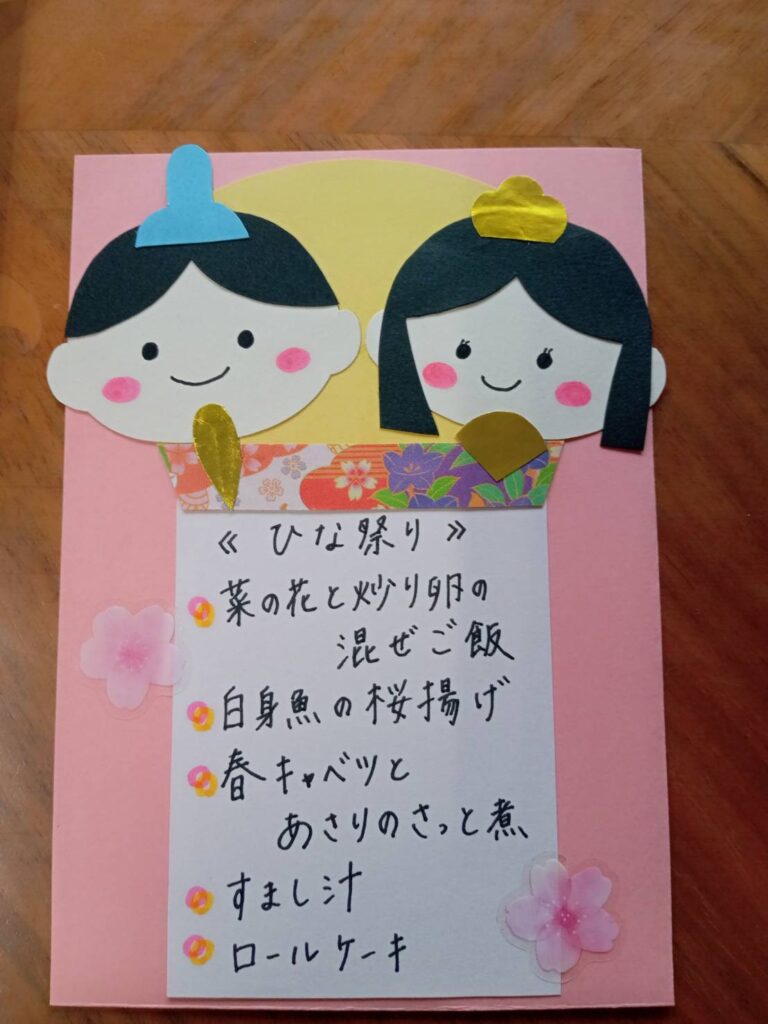 《 ひな祭り 》
菜の花と炒り卵の
混ぜご飯
白身魚の桜揚げ
春キャベツと
あさりのさっと煮
すまし汁
ロールケーキ